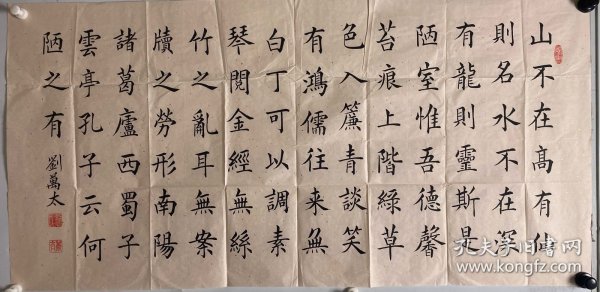 山不在高有仙
則名水不在深
有龍則靈斯是
陋室惟吾德馨
苔痕上階綠草
色入簾青談笑
有鴻儒往来無
白丁可以調素
琴閱金經無絲
竹之亂耳無案
牘之勞形南陽
諸葛廬西蜀子
雲亭孔子云何
陋之有
劉萬太
孔夫子旧书网
www.kongfz.com